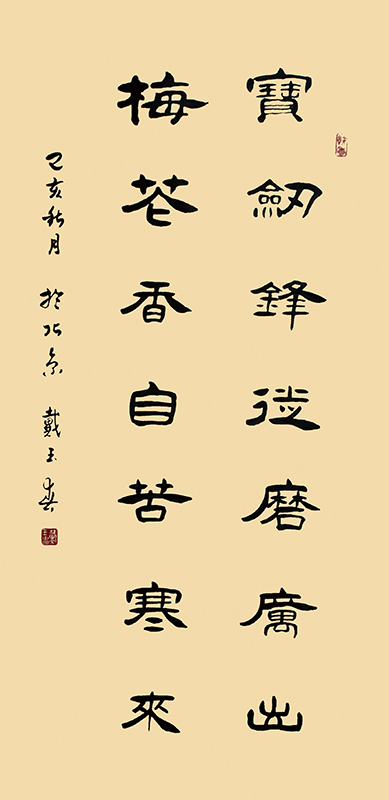 寶劒鋒從磨厲出
梅花香自苦寒來
己亥秋月 於北京 戴玉